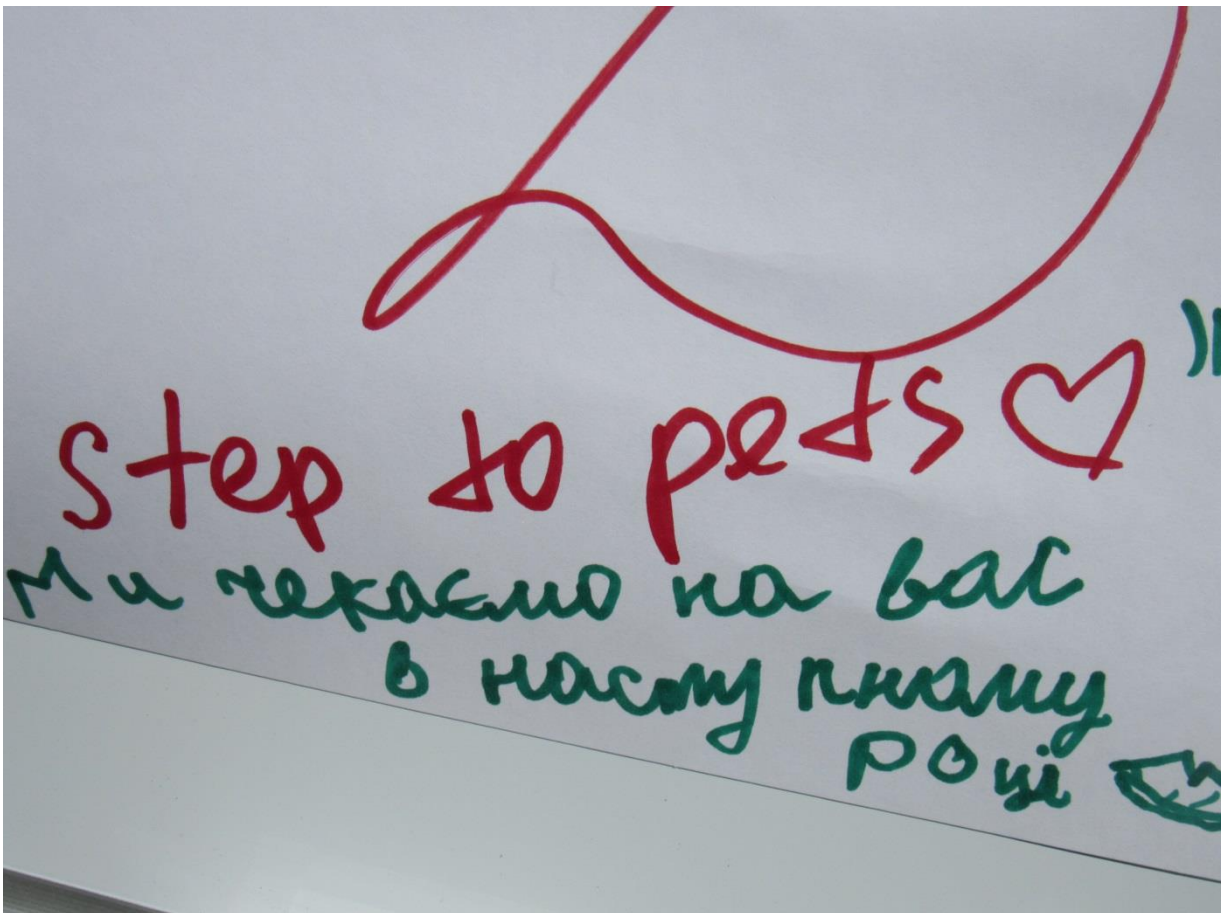 step to pets
Ми чекаємо на вас
в наступному
році